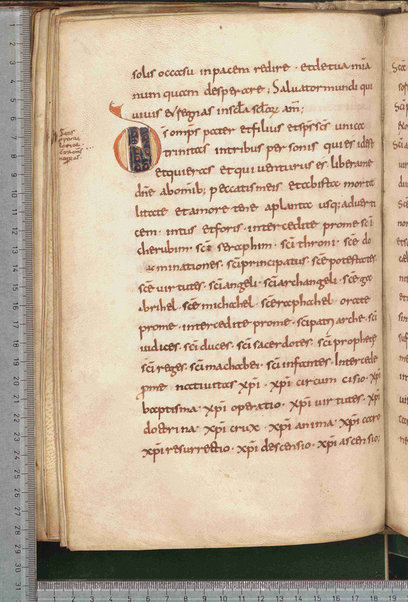 solis occasu inpacem redire · etdetua mĩa
numquam desperare ; Saluatormundi qui
uiuis &regnas inscła scłorũ am̃ ;
Ds omp̃s pater etfilius etsp̃s sc̃s unica
trinitas intribus personis qui es idẽ
etquieras et qui uenturus es liberame
dñe abomĩb; peccatismeis etabista morta
litate etamore terre aplanta usq; aduerti
cem · intus etforis · intercedite prome sc̃i
cherubim · sc̃a seraphim · sc̃i throni · sc̃e do
minationes · sc̃iprincipatus · sc̃e potestates
sc̃e uirtutes · sc̃iangeli · sc̃iarchangeli · sc̃e ga
brihel · sc̃e michahel · sc̃eraphahel · orate
prome · intercedite prome · sc̃ipatriarche · sc̃i
iudices · sc̃i duces · sc̃i sacerdotes · sc̃i prophete
sc̃i reges · sc̃i machabei · sc̃i infantes · Intercede
p̃me · natiuitas xp̃i · xp̃i circumcisio · xp̃i
baptisma · xp̃i operatio · xp̃i uirtutes · xp̃i
doctrina · xp̃i crux · xp̃i anima · xp̃i caro
xp̃i resurrectio · xp̃i descensio · xp̃i ascensio ;